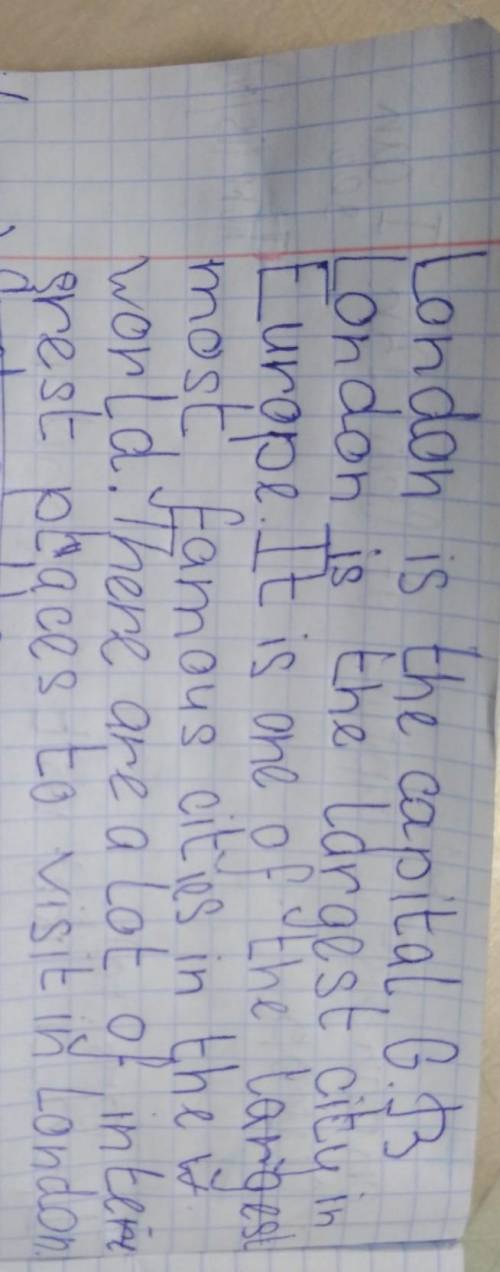 London is the capital G.B
London is the largest city in
Europe. It is one of the largest
most famous cities in the w
world. There are a lot of inte-
rest places to visit in London.